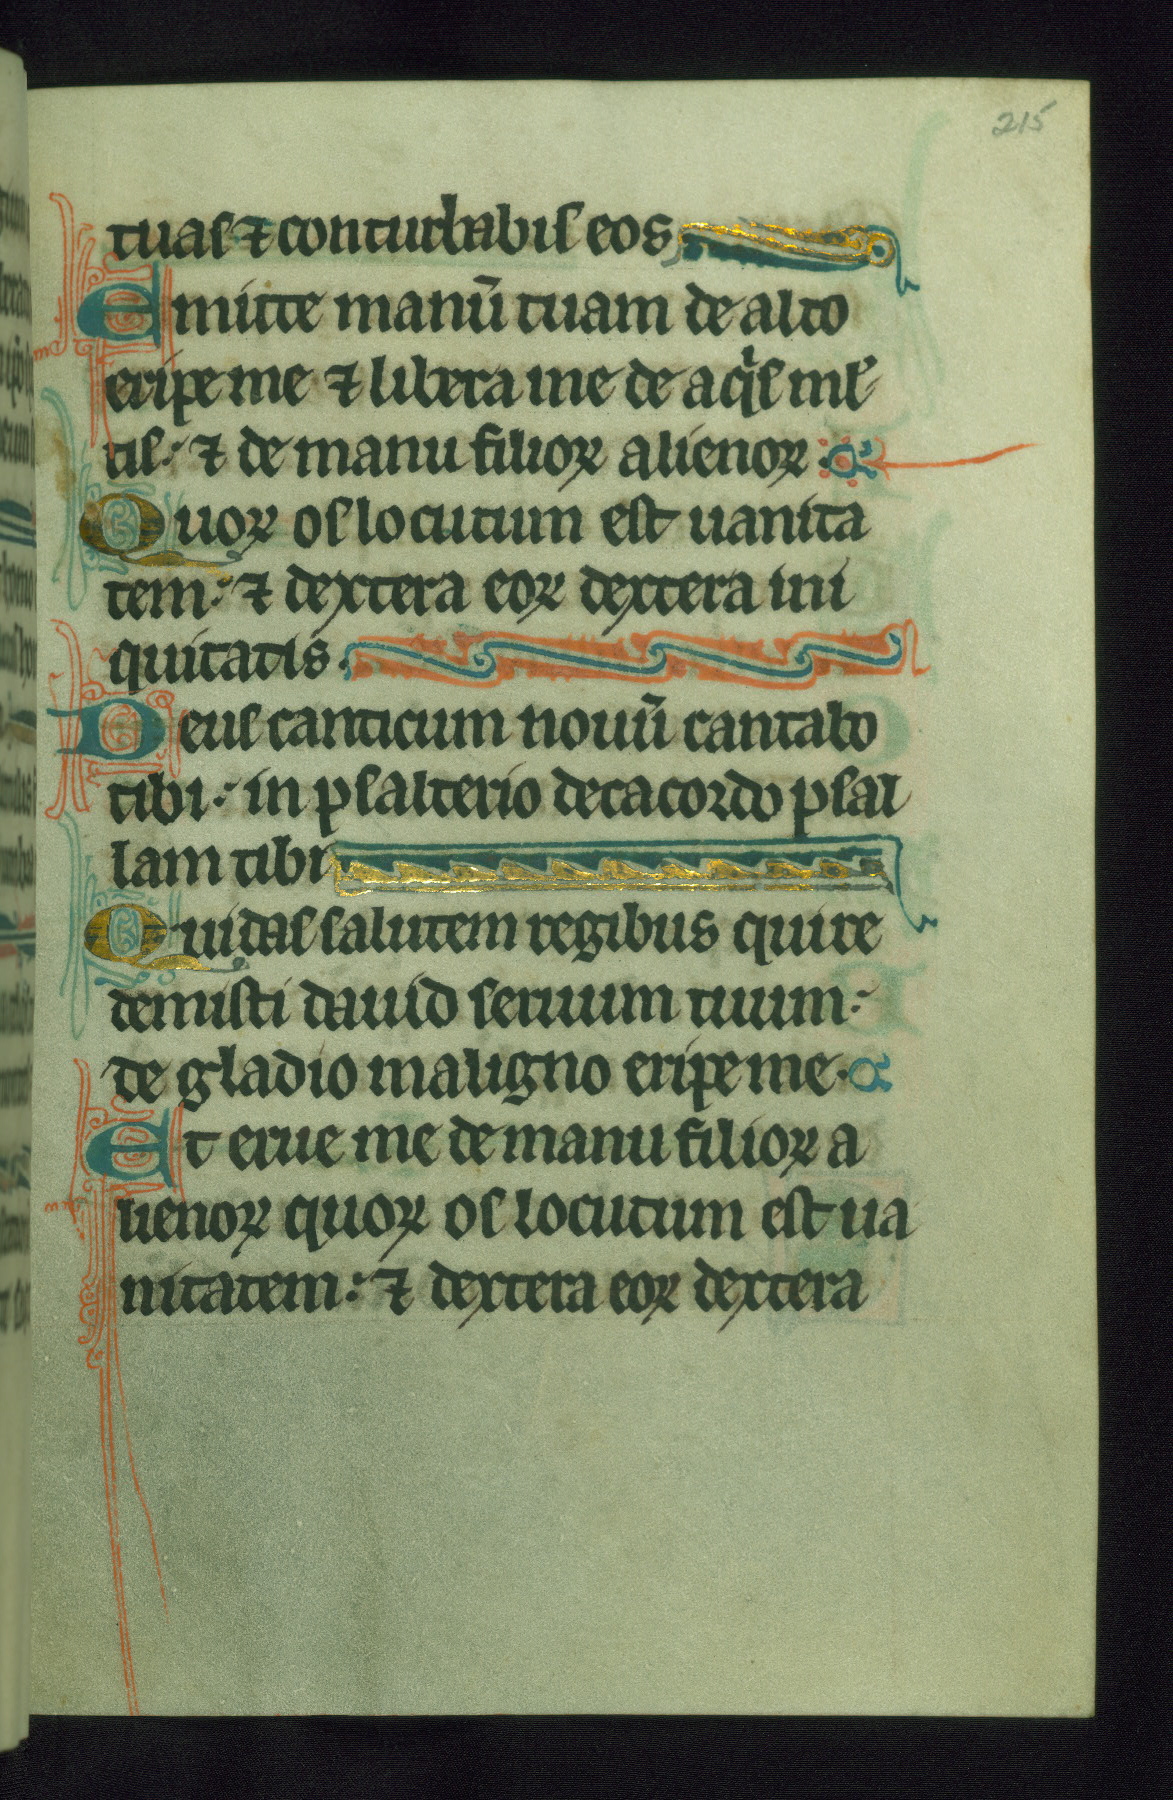 215
tuas ⁊ conturbabis eos
Emitte manū tuam de alto
eripe me ⁊ libera me de aqͥs ml᷑
tis: ⁊ de manu filioꝝ alienoꝝ:
Quoꝝ os locutum est uanita
tem: ⁊ dextera eoꝝ dextera ini
quitatis.
Deus canticum nouū cantabo
tibi: in psalterio decacordo psal
lam tibi
Qui das salutem regibus qui re
demisti dauid seruum tuum:
de gladio maligno eripe me.
Et erue me de manu filioꝝ a
lienoꝝ quoꝝ os locutum est ua
nitatem: ⁊ dextera eoꝝ dextera